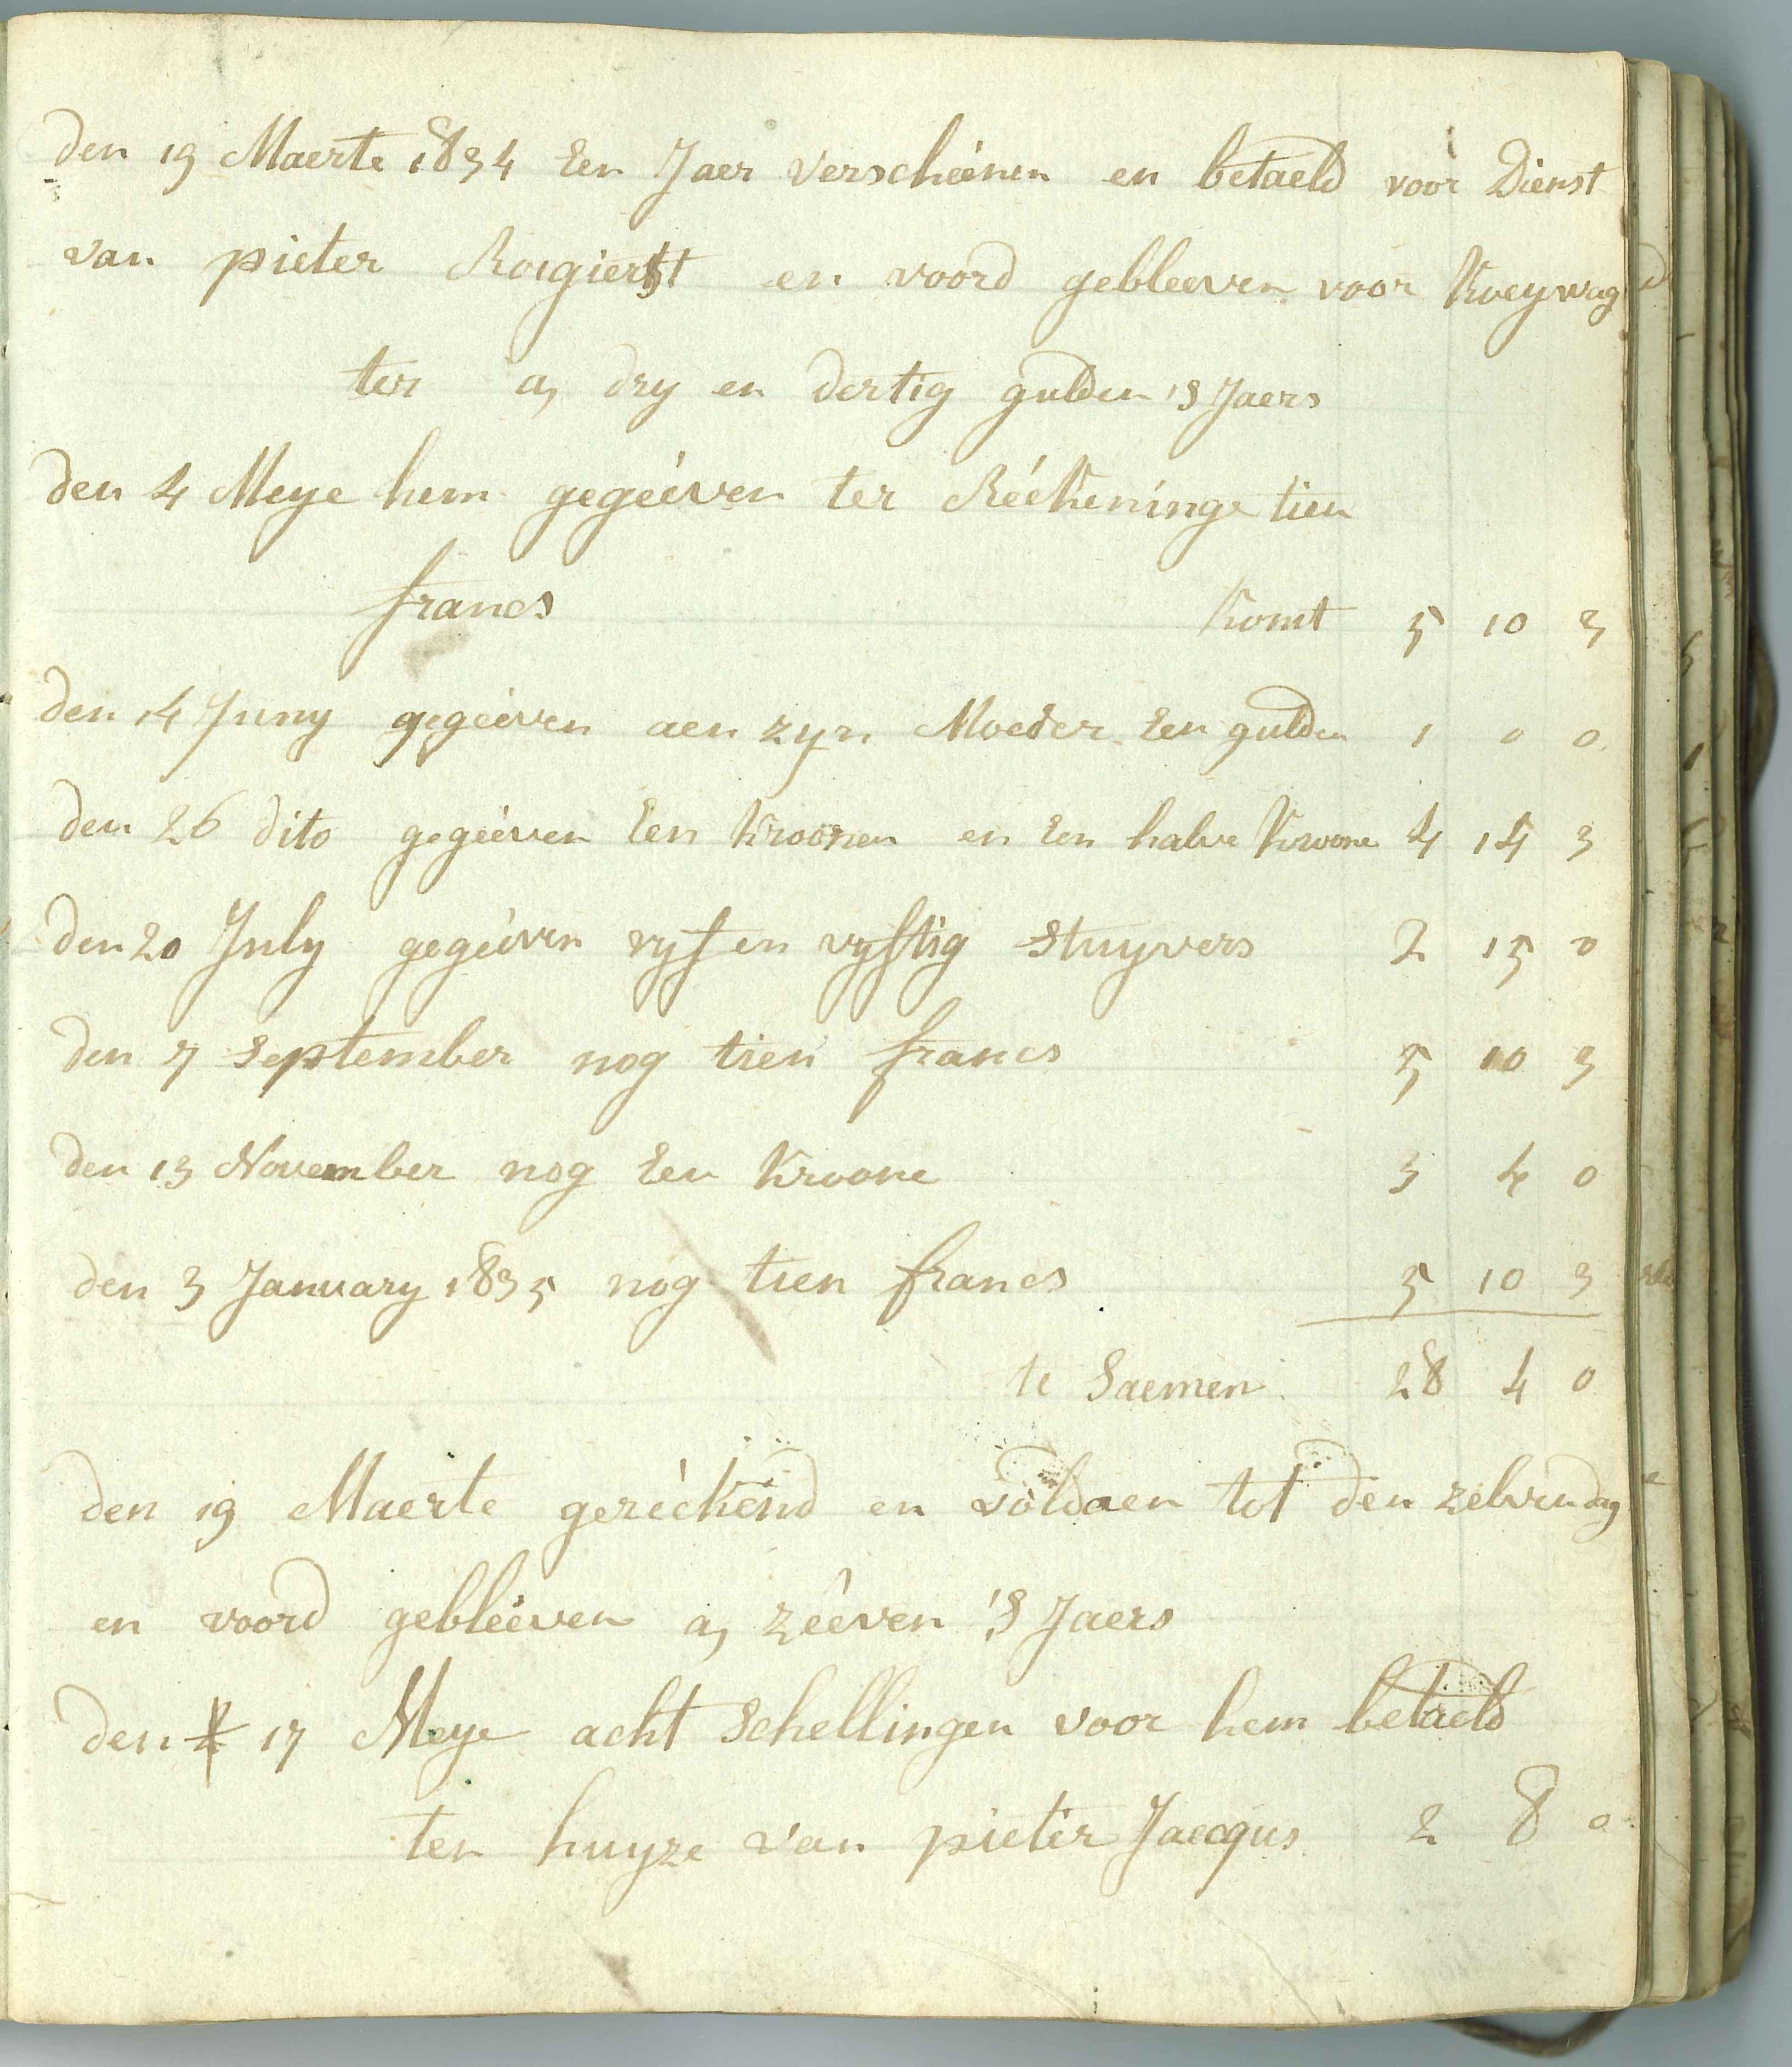 den 19 Maerte 1834 Een Jaer verscheénen en betaeld voor Dienst
van pieter Roigierst en voord gebleeven voor Koeywag
ter a, dry en dertig gulden 's Jaers
den 4 Meye hem gegeéven ter Réékeninge tien
francs Komt 5 10 3
den 14 Juny gegeéven aen zyn Moeder Een gulden 1 0 0
den 26 dito gegeéven Een Kroonen en Een halve Kroone 4 14 3
den 20 July gegeéven vyf en vyftig Stuyvers 2 15 0
den 7 September nog tien francs 5 10 3
den 13 November nog Een Kroone 3 4 0
den 3 January 1835 nog tien francs 5 10 3
te Saemen 28 4 0
den 19 Maerte gereékend en voldaen tot den zelven dag
en voord gebleéven a, zeéven 'S Jaers
den 17 Meye acht Schellingen voor hem betaeld
ten huyze van pieter Jacqus 2 8 0